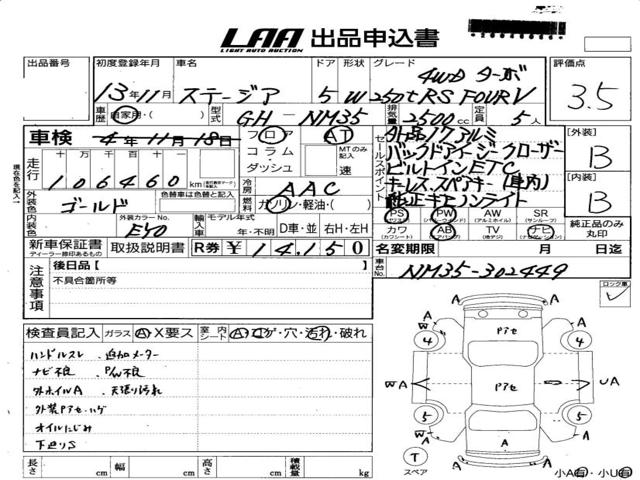 LAA 出品申込書
LIGHT AUTO AUCTION
出品番号 初度登録年月 車名 ドア 形状 グレード 評価点
13年11月 ステージア 5 W 250t RS FOUR V 4WD ターボ 3.5
車歴 自家用・( ) 型式 GH-NM35 排気量 2500cc 定員 5人
車検 4年11月18日 フロア コラム・ダッシュ AT MTのみ記入 速
走行 十万千百十一 106460 km
セールスポイント
社外17アルミ
バックドアイージークローザー
ビルトインETC
キーレス、スペアキー(車内)
純正キセノンライト
[外装] B
[内装] B
外装色 ゴールド 色替車は色替と記入
冷房 AAC
燃料 ガソリン・軽油・( )
内装色 外装カラーNo. EY0 輸入車 モデル年式 年・不明 D車・並 右H・左H
PS PW AW SR
(パワーステアリング) (パワーウィンドウ) (アルミホイル) (サンルーフ)
カワ AB TV ナビ
純正品のみ丸印
新車保証書 取扱説明書 R券 ¥14,150
ディーラー捺印あるもの
名変期限 月 日迄
車台No. NM35-302449
注意事項 後日品【 】
不具合箇所等
ロック車
検査員記入 ガラス A・X要ス 室内 シート A・コゲ・穴・汚れ・破れ
ハンドルスレ . 追加メーター
ナビ不良 . P/W不良
外ホイルA . 天張り汚れ
外装Pアセ・ハゲ
オイルにじみ
下廻りS
A A
W A Pアセ A
4 4
WA Pアセ UA
5 5
W A A A
T スペア
長さ cm 幅 cm 高さ cm 積載量 kg
小A有・小U有